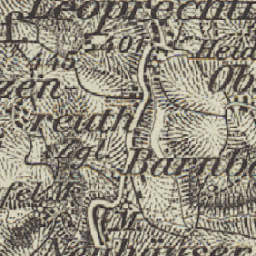 Leoprechti
401
Heid
445
Ob
zen
reuth
Zgl.
Barnb
M.
Neuhäuser